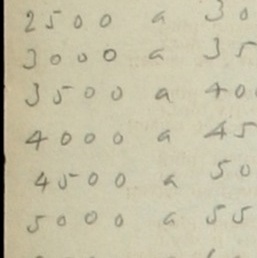 2500 a 30
3000 a 35
3500 a 40
4000 a 45
4500 a 50
5000 a 55